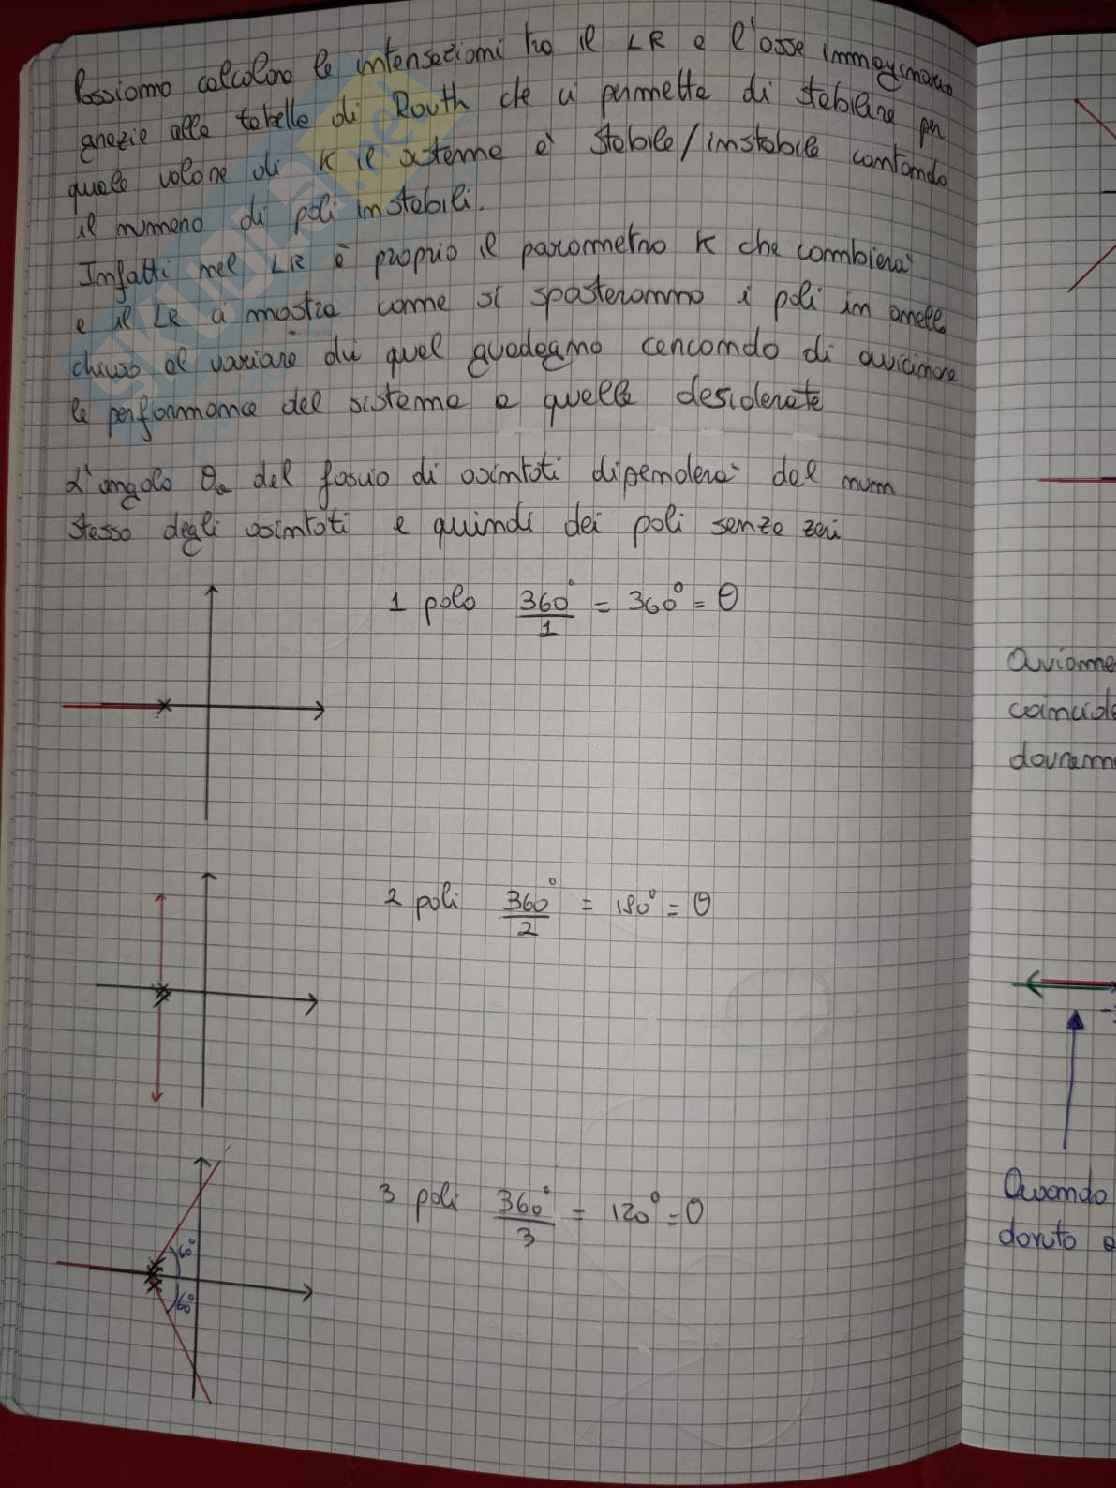 Possiamo calcolare le intersezioni tra il LR e l'asse immaginario
grazie alla tabella di Routh che ci permette di stabilire per
quale valore di K il sistema è stabile/instabile contando
il numero di poli instabili.
Infatti nel LR è proprio il parametro K che cambierà
e il LR ci mostra come si sposteranno i poli in anello
chiuso al variare di quel guadagno cercando di avvicinare
le performance del sistema a quelle desiderate
L'angolo θa del fascio di asintoti dipenderà dal num
stesso degli asintoti e quindi dei poli senza zeri
1 polo 360°/1 = 360° = θ
2 poli 360°/2 = 180° = θ
3 poli 360°/3 = 120° = θ
60°
60°
coincide
Quando
dovuto e
SKUOLA.net